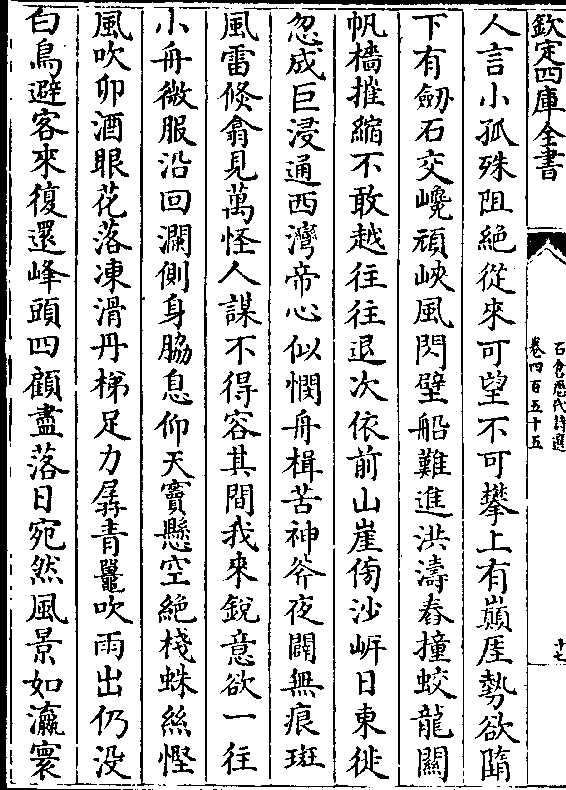 欽定四庫全書
石倉歷代詩選
卷四百五十五
十七
人言小孤殊阻絶從來可望不可攀上有巔厓勢欲隋
下有劒石交巉頑峽風閃壁船難進洪濤舂撞蛟龍關
帆檣摧縮不敢越往往退次依前山崖傍沙㟁日東徙
忽成巨浸通西灣帝心似憫舟楫苦神斧夜闢無痕斑
風雷倐翕見萬怪人謀不得容其間我來銳意欲一往
小舟微服沿回瀾側身脇息仰天竇懸空絶棧蛛絲慳
風吹卯酒眼花落凍滑丹梯足力孱青鼉吹雨出仍没
白鳥避客來復還峰頭四顧盡落日宛然風景如瀛寰